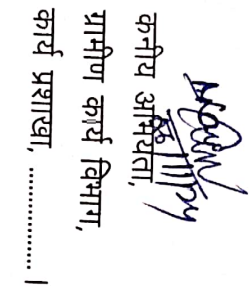 कनीय अभियंता,
ग्रामीण कार्य विभाग,
कार्य प्रशाखा, ................ ।